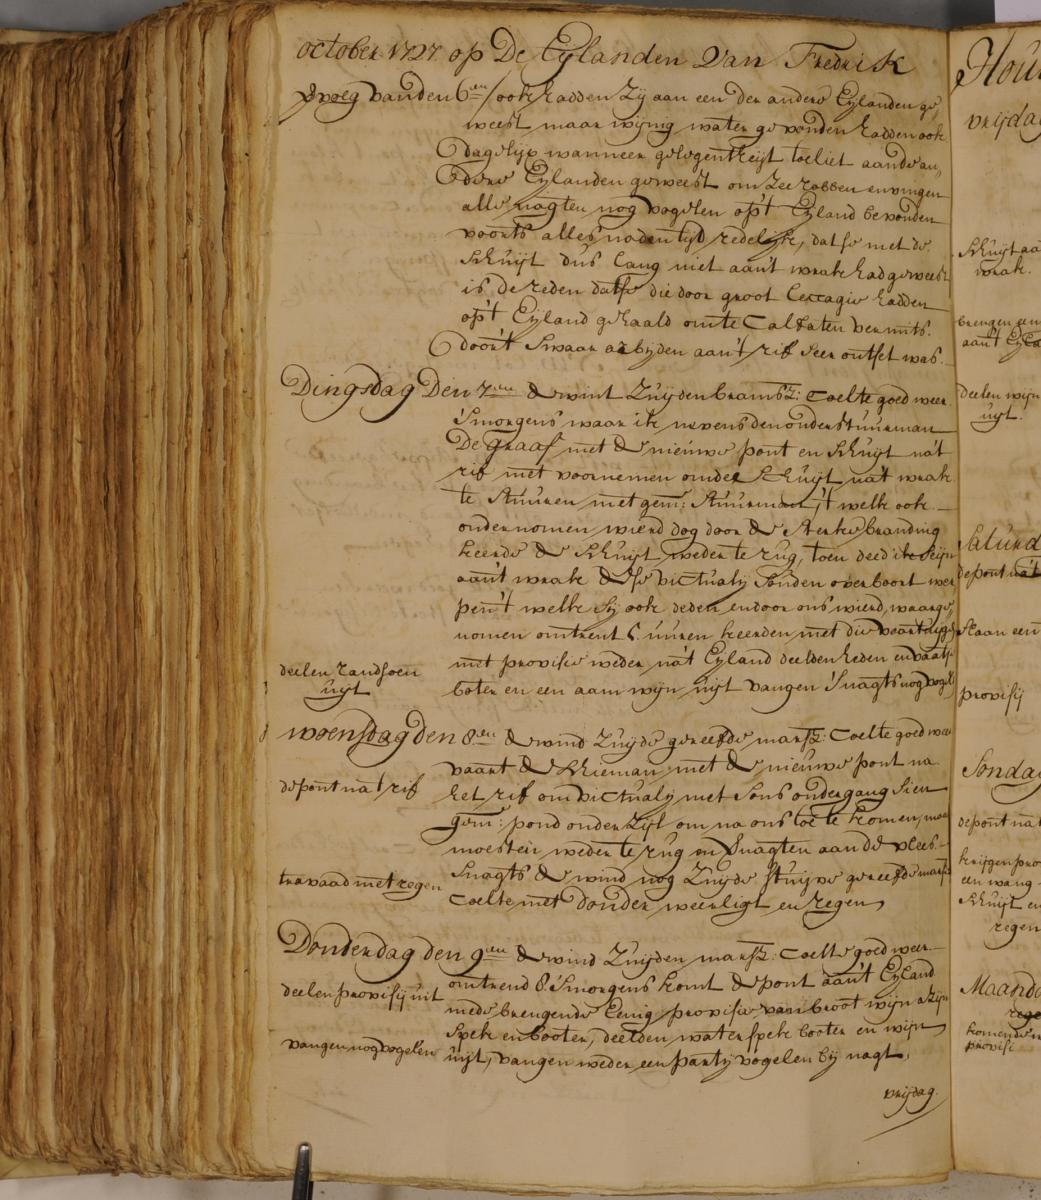 october 1727 op De Eylanden Van Fredrik
vervolg van den 6en / ook hadden Zij aan een der andere Eylanden ge,
weest maar wijnig water gevonden hadden ook
dagelijx wanneer gelegentheijt toeliet aan de an,
dere Eylanden geweest om Zee robben en vingen
alle nagten nog vogelen op't Eyland bevonden
voorts alles na den tijd redelijk, dat se met de
Schuijt dus lang niet aan't wrak had geweest
is de reden dat se die door groot leccagie hadden
op't Eyland gehaald om te Calfaten vermits
door't Swaar arbijden aan't rif seer ontset was.
Dingsdag Den 7en de wint Zuijden bramsz: Coelte goed weer
Smorgens waar ik nevens den onderstuurman
De graaf met de nieuwe pont en Schuijt na't
rif met voornemen om de Schuijt na't wrak
te Stuuren met gem: Stuurman, 't welk ook
ondernomen wierd dog door de Sterke branding
keerde de Schuijt weder te rug, toen deed ik Seijn
aan't wrak de victualij Souden over boort wer
pen 't welk Sij ook deden en door ons wierd waarge,
nomen omtrent 5 uuren keerden met die vaartuijge
met provisie weder na't Eyland deelden heden
deelen randsoen
uijt
boter en een aam wijn uijt vangen Snagts nog vogel
woensdag den 8en de wind Zuijde gereefde marsz: Coelte goed weer
vaart de Schieman met de nieuwe pont na
de pont na't rif
het rif om victualij met Sons ondergang Sien
gem: pond onder Zijl om na ons toe te komen, maar
moesten weder te rug en Snagten aan de vlees
Snagts de wind nog Zuijde Stuijve gereefde marsz
travaad met regen
Coelte met donder weerligt en regen,
Donderdag den 9en de wind Zuijden marsz: Coelte goed weer
omtrend 8 Smorgens komt de pont aan't Eyland
deelen provisij uit
mede brengende Eenig provisie van broot wijn azijn
Spek en booter, deelden water spek booter en wijn
vangen nog vogelen
uijt, vangen weder een partij vogelen bij nagt,
vrijdag.
Hou
vrijdag
Schuijt aa
wrak.
brengen een
aan't Eyla
deelen wijn
uijt
Saturd
de pont na't
Slaan een
provisij
Sonda
de pont na
krijgen pro
een wang
Schuijt en
regen
Maanda
rege
komende
provisi